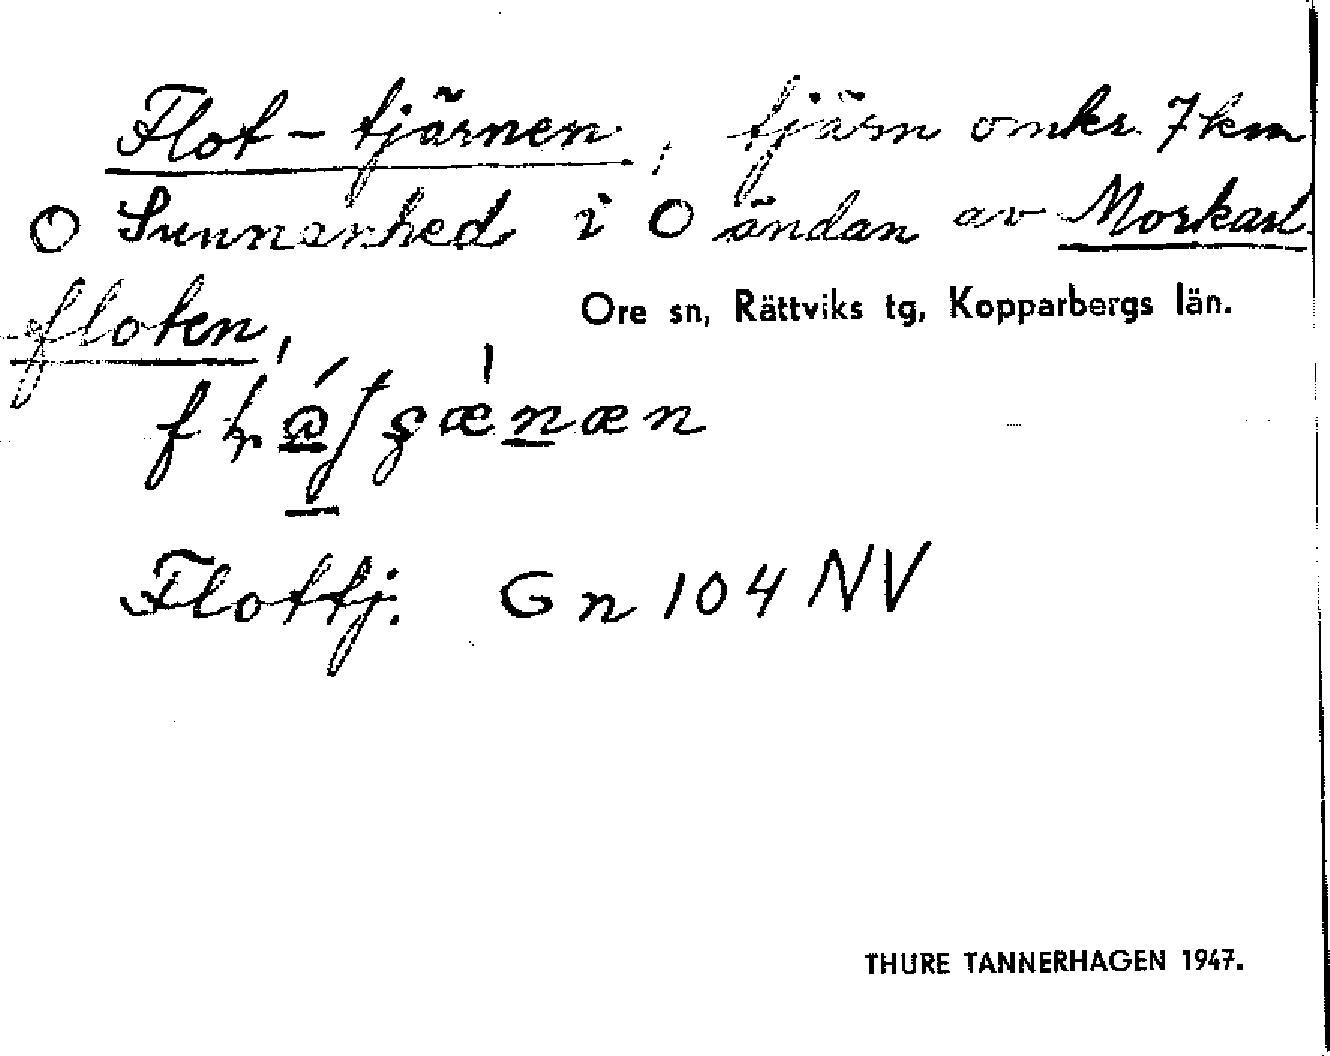 Flot-tjärnen, tjärn omkr. 7 km
O Sunnanhed i O ändan av Morkarl-
floten,
Ore sn, Rättviks tg, Kopparbergs län.
Flottj. Gn 104 NV
THURE TANNERHAGEN 1947.